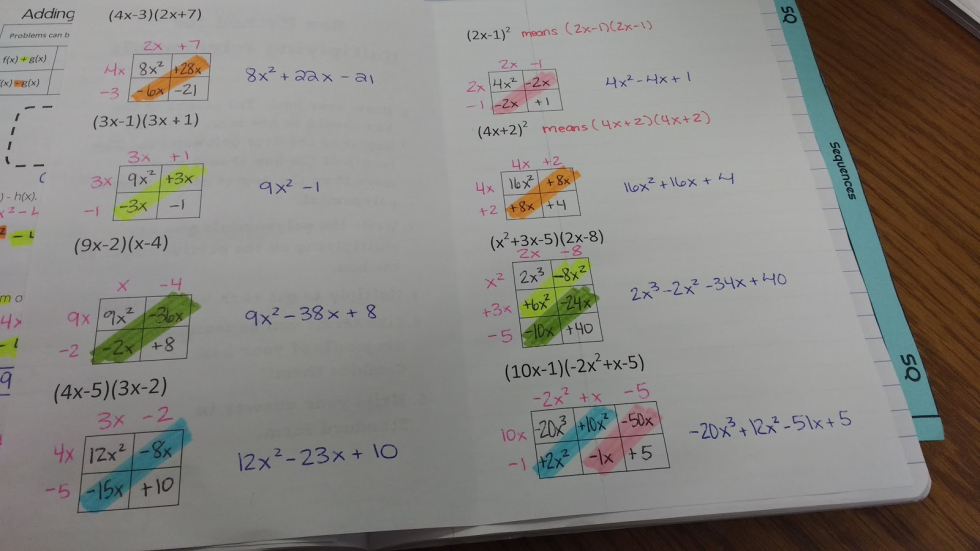 Adding
Problems can b
f(x) + g(x)
(x) - g(x)
) - h(x).
(4x-3)(2x+7)
2x +7
4x 8x² +28x
-3 -6x -21
8x² + 22x - 21
(3x-1)(3x+1)
3x +1
3x 9x² +3x
-1 -3x -1
9x² - 1
(9x-2)(x-4)
x -4
9x 9x² -36x
-2 -2x +8
9x² - 38x + 8
(4x-5)(3x-2)
3x -2
4x 12x² -8x
-5 -15x +10
12x² - 23x + 10
(2x-1)² means (2x-1)(2x-1)
2x -1
2x 4x² -2x
-1 -2x +1
4x² - 4x + 1
(4x+2)² means (4x+2)(4x+2)
4x +2
4x 16x² +8x
+2 +8x +4
16x² + 16x + 4
(x²+3x-5)(2x-8)
2x -8
x² 2x³ -8x²
+3x +6x² -24x
-5 -10x +40
2x³ - 2x² - 34x + 40
(10x-1)(-2x²+x-5)
-2x² +x -5
10x -20x³ +10x² -50x
-1 +2x² -1x +5
-20x³ + 12x² - 51x + 5
SQ
Sequences
SQ